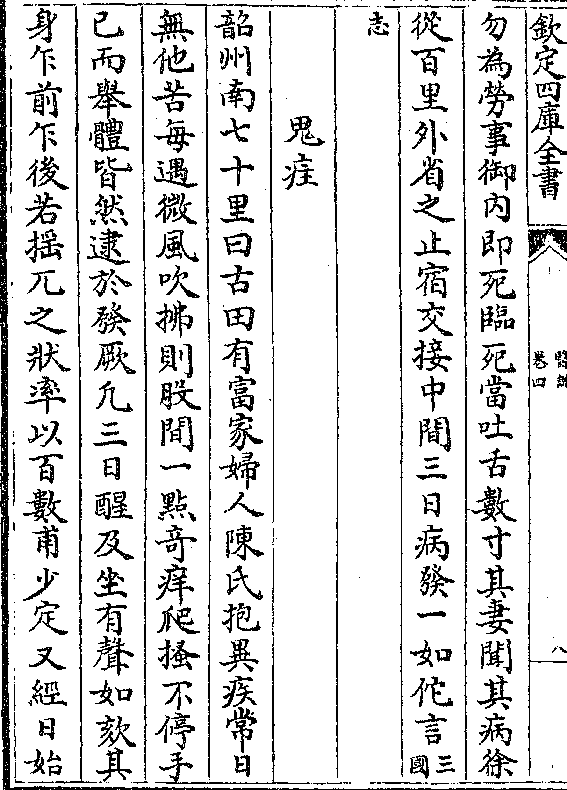 欽定四庫全書
醫說
卷四
八
勿為勞事御内即死臨死當吐舌數寸其妻聞其病徐
從百里外省之止宿交接中間三日病發一如佗言三國
志
鬼疰
韶州南七十里曰古田有富家婦人陳氏抱異疾常日
無他苦每遇微風吹拂則股間一點竒痒爬搔不停手
已而舉體皆然逮於發厥凡三日醒及坐有聲如欬其
身乍前乍後若揺兀之狀率以百數甫少定又經日始